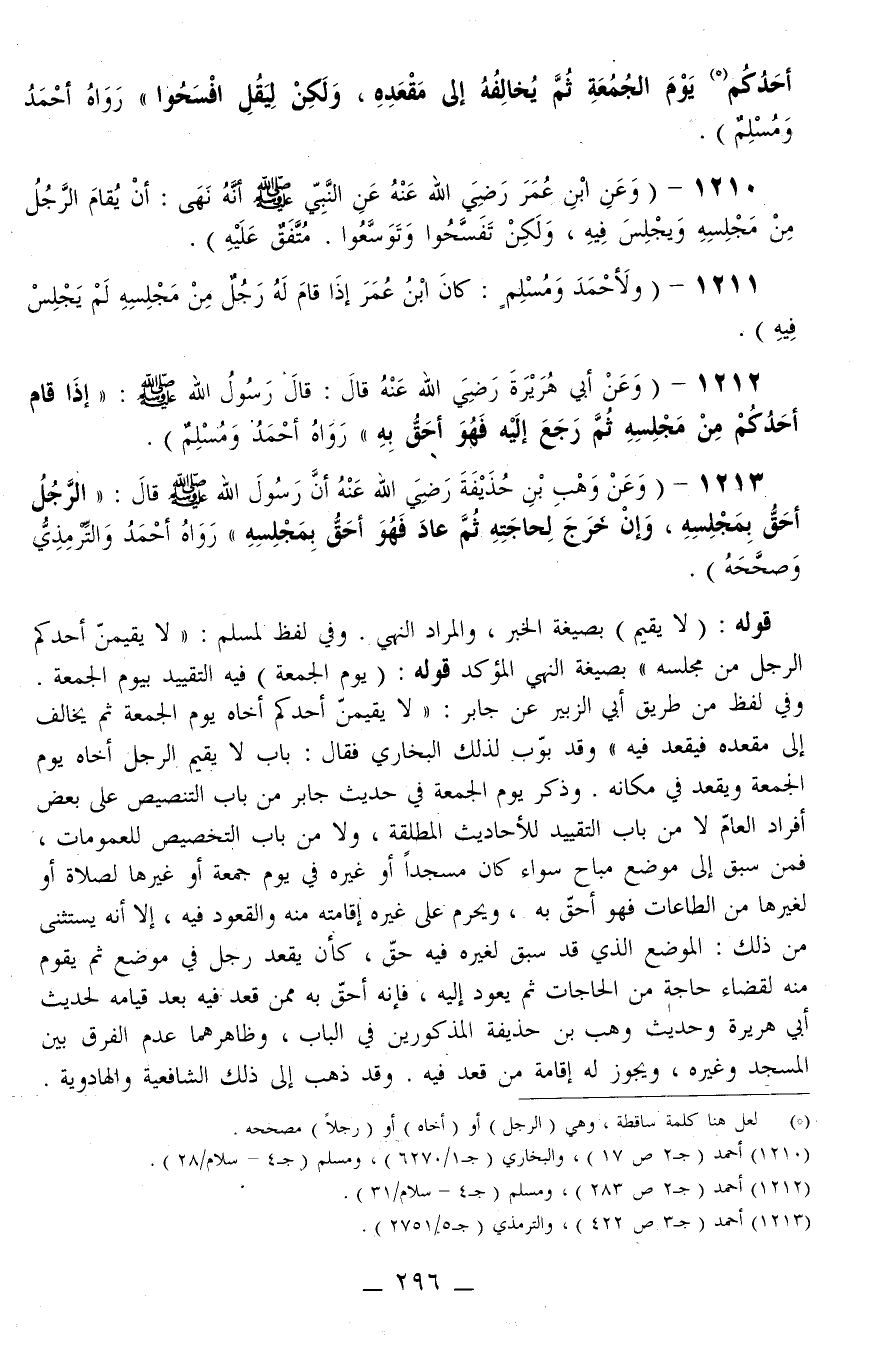 أحَدُكُم(٥) يَوْمَ الجُمُعَةِ ثُمَّ يُخالِفُهُ إلى مَقْعَدِهِ ، وَلَكِنْ لِيَقُلِ افْسَحُوا » رَوَاهُ أحْمَدُ
وَمُسْلِمٌ ) .
١٢١٠ – ( وَعَنِ ابْنِ عُمَرَ رَضِيَ الله عَنْهُ عَنِ النَّبِيّ ﷺ أنَّهُ نَهَى : أنْ يُقامَ الرَّجُلُ
مِنْ مَجْلِسِهِ وَيجْلِسَ فِيهِ ، وَلَكِنْ تَفَسَّحُوا وَتَوَسَّعُوا . مُتَّفَقٌ عَلَيْهِ ) .
١٢١١ – ( ولَأحْمَدَ وَمُسْلِمٍ : كانَ ابْنُ عُمَرَ إذَا قامَ لَهُ رَجُلٌ مِنْ مَجْلِسِهِ لَمْ يَجْلِسْ
فِيهِ ) .
١٢١٢ – ( وَعَنْ أبي هُرَيْرَةَ رَضِيَ الله عَنْهُ قالَ : قالَ رَسُولُ الله ﷺ : « إذَا قام
أحَدُكُمْ مِنْ مَجْلِسِهِ ثُمَّ رَجَعَ إلَيْه فَهُوَ أحَقُّ بِهِ » رَوَاهُ أحْمَدُ وَمُسْلِمٌ ) .
١٢١٣ – ( وَعَنْ وَهْبِ بْنِ حُذَيْفَةَ رَضِيَ الله عَنْهُ أنَّ رَسُولَ الله ﷺ قالَ : « الرَّجُلُ
أحَقُّ بِمَجْلِسِهِ ، وَإنْ خَرَجَ لِحاجَتِهِ ثُمَّ عادَ فَهُوَ أحَقُّ بِمَجْلِسِهِ » رَوَاهُ أحْمَدُ وَالتِّرْمِذِيُّ
وَصحَّحَهُ ) .
قوله : ( لا يقيم ) بصيغة الخبر ، والمراد النهي . وفي لفظ لمسلم : « لا يقيمنّ أحدكم
الرجل من مجلسه » بصيغة النهي المؤكد قوله : ( يوم الجمعة ) فيه التقييد بيوم الجمعة .
وفي لفظ من طريق أبي الزبير عن جابر : « لا يقيمنّ أحدكم أخاه يوم الجمعة ثم يخالف
إلى مقعده فيقعد فيه » وقد بوّب لذلك البخاري فقال : باب لا يقيم الرجل أخاه يوم
الجمعة ويقعد في مكانه . وذكر يوم الجمعة في حديث جابر من باب التنصيص على بعض
أفراد العامّ لا من باب التقييد للأحاديث المطلقة ، ولا من باب التخصيص للعمومات ،
فمن سبق إلى موضع مباح سواء كان مسجداً أو غيره في يوم جمعة أو غيرها لصلاة أو
لغيرها من الطاعات فهو أحقّ به ، ويحرم على غيره إقامته منه والقعود فيه ، إلا أنه يستثنى
من ذلك : الموضع الذي قد سبق لغيره فيه حقّ ، كأن يقعد رجل في موضع ثم يقوم
منه لقضاء حاجة من الحاجات ثم يعود إليه ، فإنه أحقّ به ممن قعد فيه بعد قيامه لحديث
أبي هريرة وحديث وهب بن حذيفة المذكورين في الباب ، وظاهرهما عدم الفرق بين
المسجد وغيره ، ويجوز له إقامة من قعد فيه . وقد ذهب إلى ذلك الشافعية والهادوية .
(٥) لعل هنا كلمة ساقطة ، وهي ( الرجل ) أو ( أخاه ) أو ( رجلاً ) مصححه .
(١٢١٠) أحمد ( جـ٢ ص ١٧ ) ، والبخاري ( جـ٦٢٧٠/١ ) ، ومسلم ( جـ٤ – سلام/٢٨ ) .
(١٢١٢) أحمد ( جـ٢ ص ٢٨٣ ) ، ومسلم ( جـ٤ – سلام/٣١ ) .
(١٢١٣) أحمد ( جـ٣ ص ٤٢٢ ) ، والترمذي ( جـ٢٧٥١/٥ ) .
– ٢٩٦ –